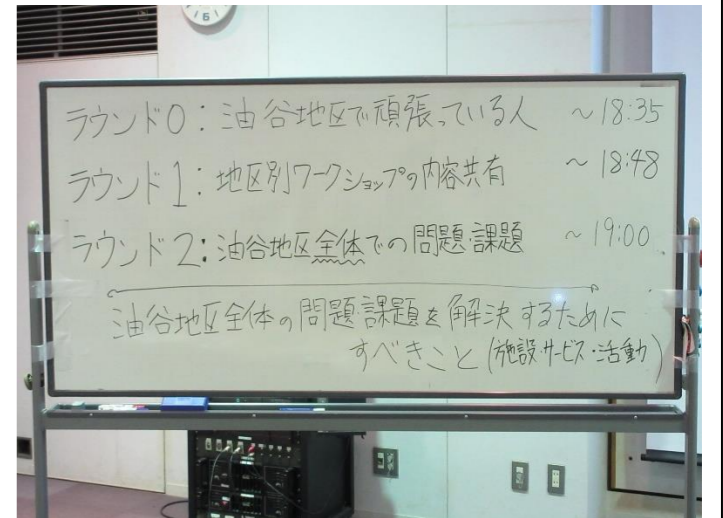 ラウンド0：油谷地区で頑張っている人 ～18:35
ラウンド1：地区別ワークショップの内容共有 ～18:48
ラウンド2：油谷地区全体での問題・課題 ～19:00
油谷地区全体の問題・課題を解決するために
すべきこと（施設・サービス・活動）